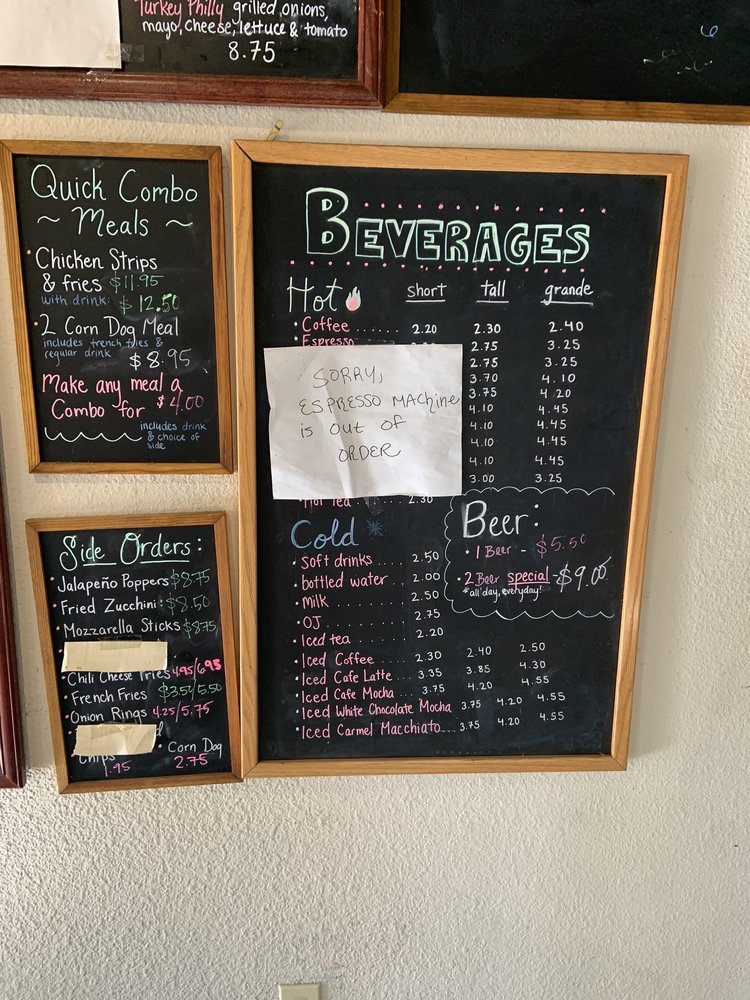 Turkey Philly grilled onions,
mayo, cheese, lettuce & tomato
8.75
Quick Combo
~ Meals ~
• Chicken Strips
& fries $11.95
with drink: $12.50
• 2 Corn Dog Meal
includes french fries &
regular drink $8.95
Make any meal a
Combo for $4.00
includes drink
& choice of
side
Side Orders:
• Jalapeño Poppers $8.75
• Fried Zucchini: $8.50
• Mozzarella Sticks $8.75
• Chili Cheese Fries 4.95/6.95
• French Fries $3.50/5.50
• Onion Rings 4.25/5.75
Chips • Corn Dog
1.95 2.75
BEVERAGES
Hot short tall grande
• Coffee ...... 2.20 2.30 2.40
• Espresso 2.75 3.25
2.75 3.25
3.70 4.10
3.75 4.20
4.10 4.45
4.10 4.45
4.10 4.45
4.10 4.45
3.00 3.25
Hot Tea 2.30
SORRY,
ESPRESSO MAChine
is out of
ORDER
Cold
• Soft drinks ..... 2.50
• bottled water ... 2.00
• Milk ........ 2.50
• OJ ........ 2.75
• Iced tea ...... 2.20
• Iced Coffee .... 2.30 2.40 2.50
• Iced Cafe Latte .. 3.35 3.85 4.30
• Iced Cafe Mocha .. 3.75 4.20 4.55
• Iced White Chocolate Mocha 3.75 4.20 4.55
• Iced Carmel Macchiato... 3.75 4.20 4.55
Beer:
• 1 Beer - $5.50
• 2 Beer special - $9.00
*all day, everyday!